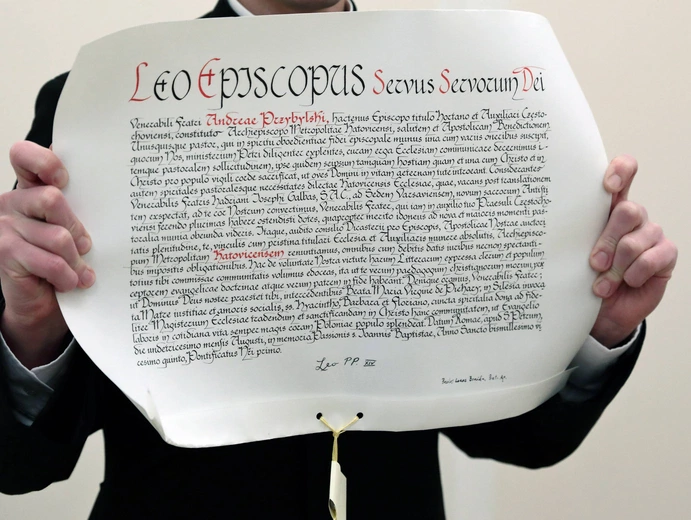 Leo Episcopus Servus Servorum Dei
Venerabili Fratri Andreae Przybylski, hactenus Episcopo titulo Hortano et Auxiliari Często-
choviensi, constituto Archiepiscopo Metropolitae Katovicensi, salutem et Apostolicam Benedictionem.
Unusquisque pastor, qui in spiritu oboedientiae fidei episcopale munus una cum vacuis oneribus suscipit,
quorum Nos, ministerium Petri diligenter explentes, cum erga Ecclesiam communicare decernimus i-
temque pastoralem sollicitudinem, ipse quidem seipsum tamquam hostiam quam et una cum Christo et in
Christo pro populo vigili corde sacrificat, ut oves Domini in vitam aeternam tute introeant. Considerantes
autem spiritales pastoralesque necessitates dilectae Katovicensis Ecclesiae, quae, vacans post translationem
Venerabilis Fratris Hadriani Josephi Galbas, S.A.C., ad Sedem Varsaviensem, novum sacrorum Antisti-
tem exspectat, ad te cor Nostrum convertimus, Venerabilis Frater, qui iam in auxilio tuo Praesuli Częstocho-
viensi ferendo plurimas habere ostendisti dotes, quapropter merito idoneus ad nova et maiora momenti pas-
toralia munia obeunda videris. Itaque, audito consilio Dicasterii pro Episcopis, Apostolicae Nostrae auctori-
tatis plenitudine, te, vinculis cum pristina titulari Ecclesia et Auxiliaris munere absolutis, Archiepisco-
pum Metropolitam Katovicensem renuntiamus, omnibus cum debitis datis iuribus necnon spectanti-
bus impositis obligationibus. Hac de voluntate Nostra virtute harum Litterarum expressa clerum et populum
totius tibi commissae communitatis volumus edoceas, ita ut te verum paedagogum christianorum morum, prae-
ceptorem evangelicae doctrinae atque verum patrem in fide habeant. Denique oramus, Venerabilis Frater,
ut Dominus Deus noster praestet tibi, intercedentibus Beata Maria Virgine de Piekary, in Silesia invoca-
ta Mater iustitiae et amoris socialis, ss. Hyacintho, Barbara et Floriano, cuncta spiritalia dona ad fide-
liter Magisterium Ecclesiae tradendum et sanctificandam in Christo hanc communitatem, ut Evangelio
laboris in cotidiana vita semper magis coram Poloniae populo splendeat. Datum Romae, apud S. Petrum,
die undetricesimo mensis Augusti, in memoria Passionis s. Joannis Baptistae, Anno Sancto bismillesimo vi-
cesimo quinto, Pontificatus Nri primo.
Leo PP. XIV